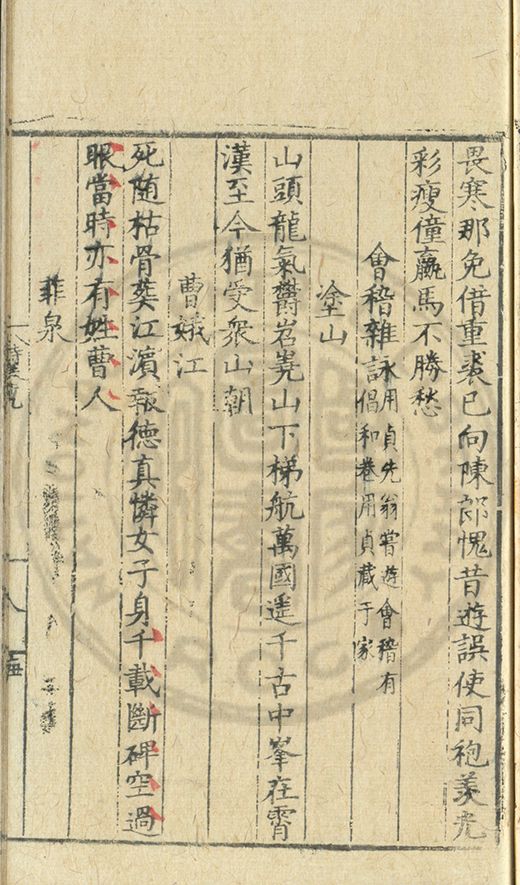 畏寒那免借重裘已向陳郎愧昔遊誤使同袍羨光
彩瘦僮羸馬不勝愁
會稽雜詠用貞先翁嘗遊會稽有
倡和卷用貞藏于家
塗山
山頭龍氣欝岧嶤山下梯航萬國遥千古中峯在霄
漢至今猶受衆山朝
曹娥江
死随枯骨葬江濵報德真憐女子身千載斷碑空過
眼當時亦有姓曹人
菲泉